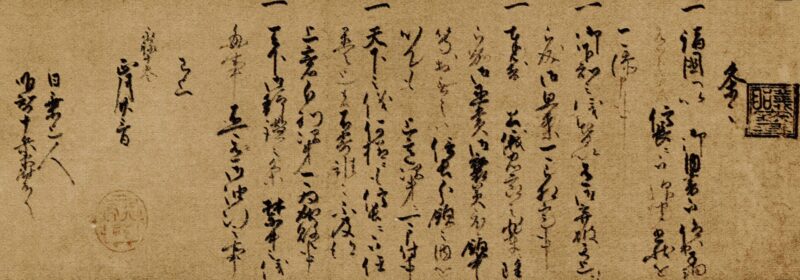 条々
一 諸国へ以御内書被仰出子細
有之者信長ニ被仰聞書状を
可添申事
一 御下知之儀皆以有御棄破其上
被成御思案可被相定事
一 奉対公儀忠節之輩雖
被加御恩賞御褒美度候領中
等於無之ハ信長分領之内を
以ても上意次第ニ可申付事
一 天下之儀何様ニも信長ニ被任
置之上者不寄誰々不及得
上意分別次第可為成敗事
一 天下御静謐之条禁中之儀
毎事不可有御油断之事
已上
永禄十参
正月廿三日
日乗上人
明智十兵衛尉殿